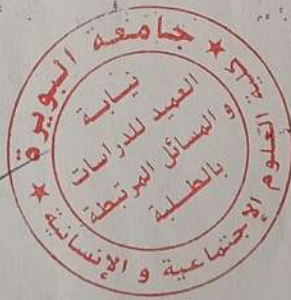 جامعة البويرة
كلية العلوم الإجتماعية و الإنسانية
نيابة
العميد للدراسات
و المسائل المرتبطة
بالطلبة